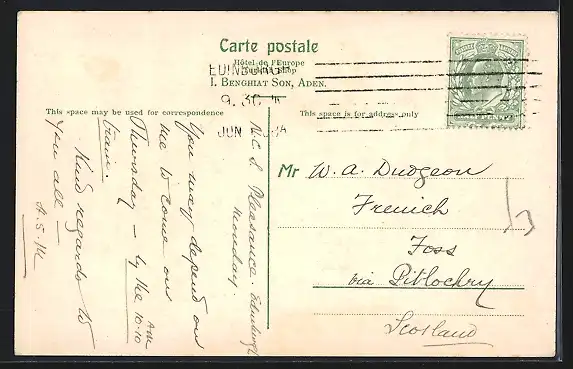 Carte postale
Hôtel de l'Europe
I. BENGHIAT SON, ADEN.
EDINBURGH
9. 30
JUN
This space may be used for correspondence
This space is for address only
Pleasance. Edinburgh
Monday.
You may depend on
me to come on
Thursday — by the 10-10 am
train.
Kind regards to
you all —
Mr W. A. Dudgeon
Frenich
Foss
via Pitlochry
Scotland